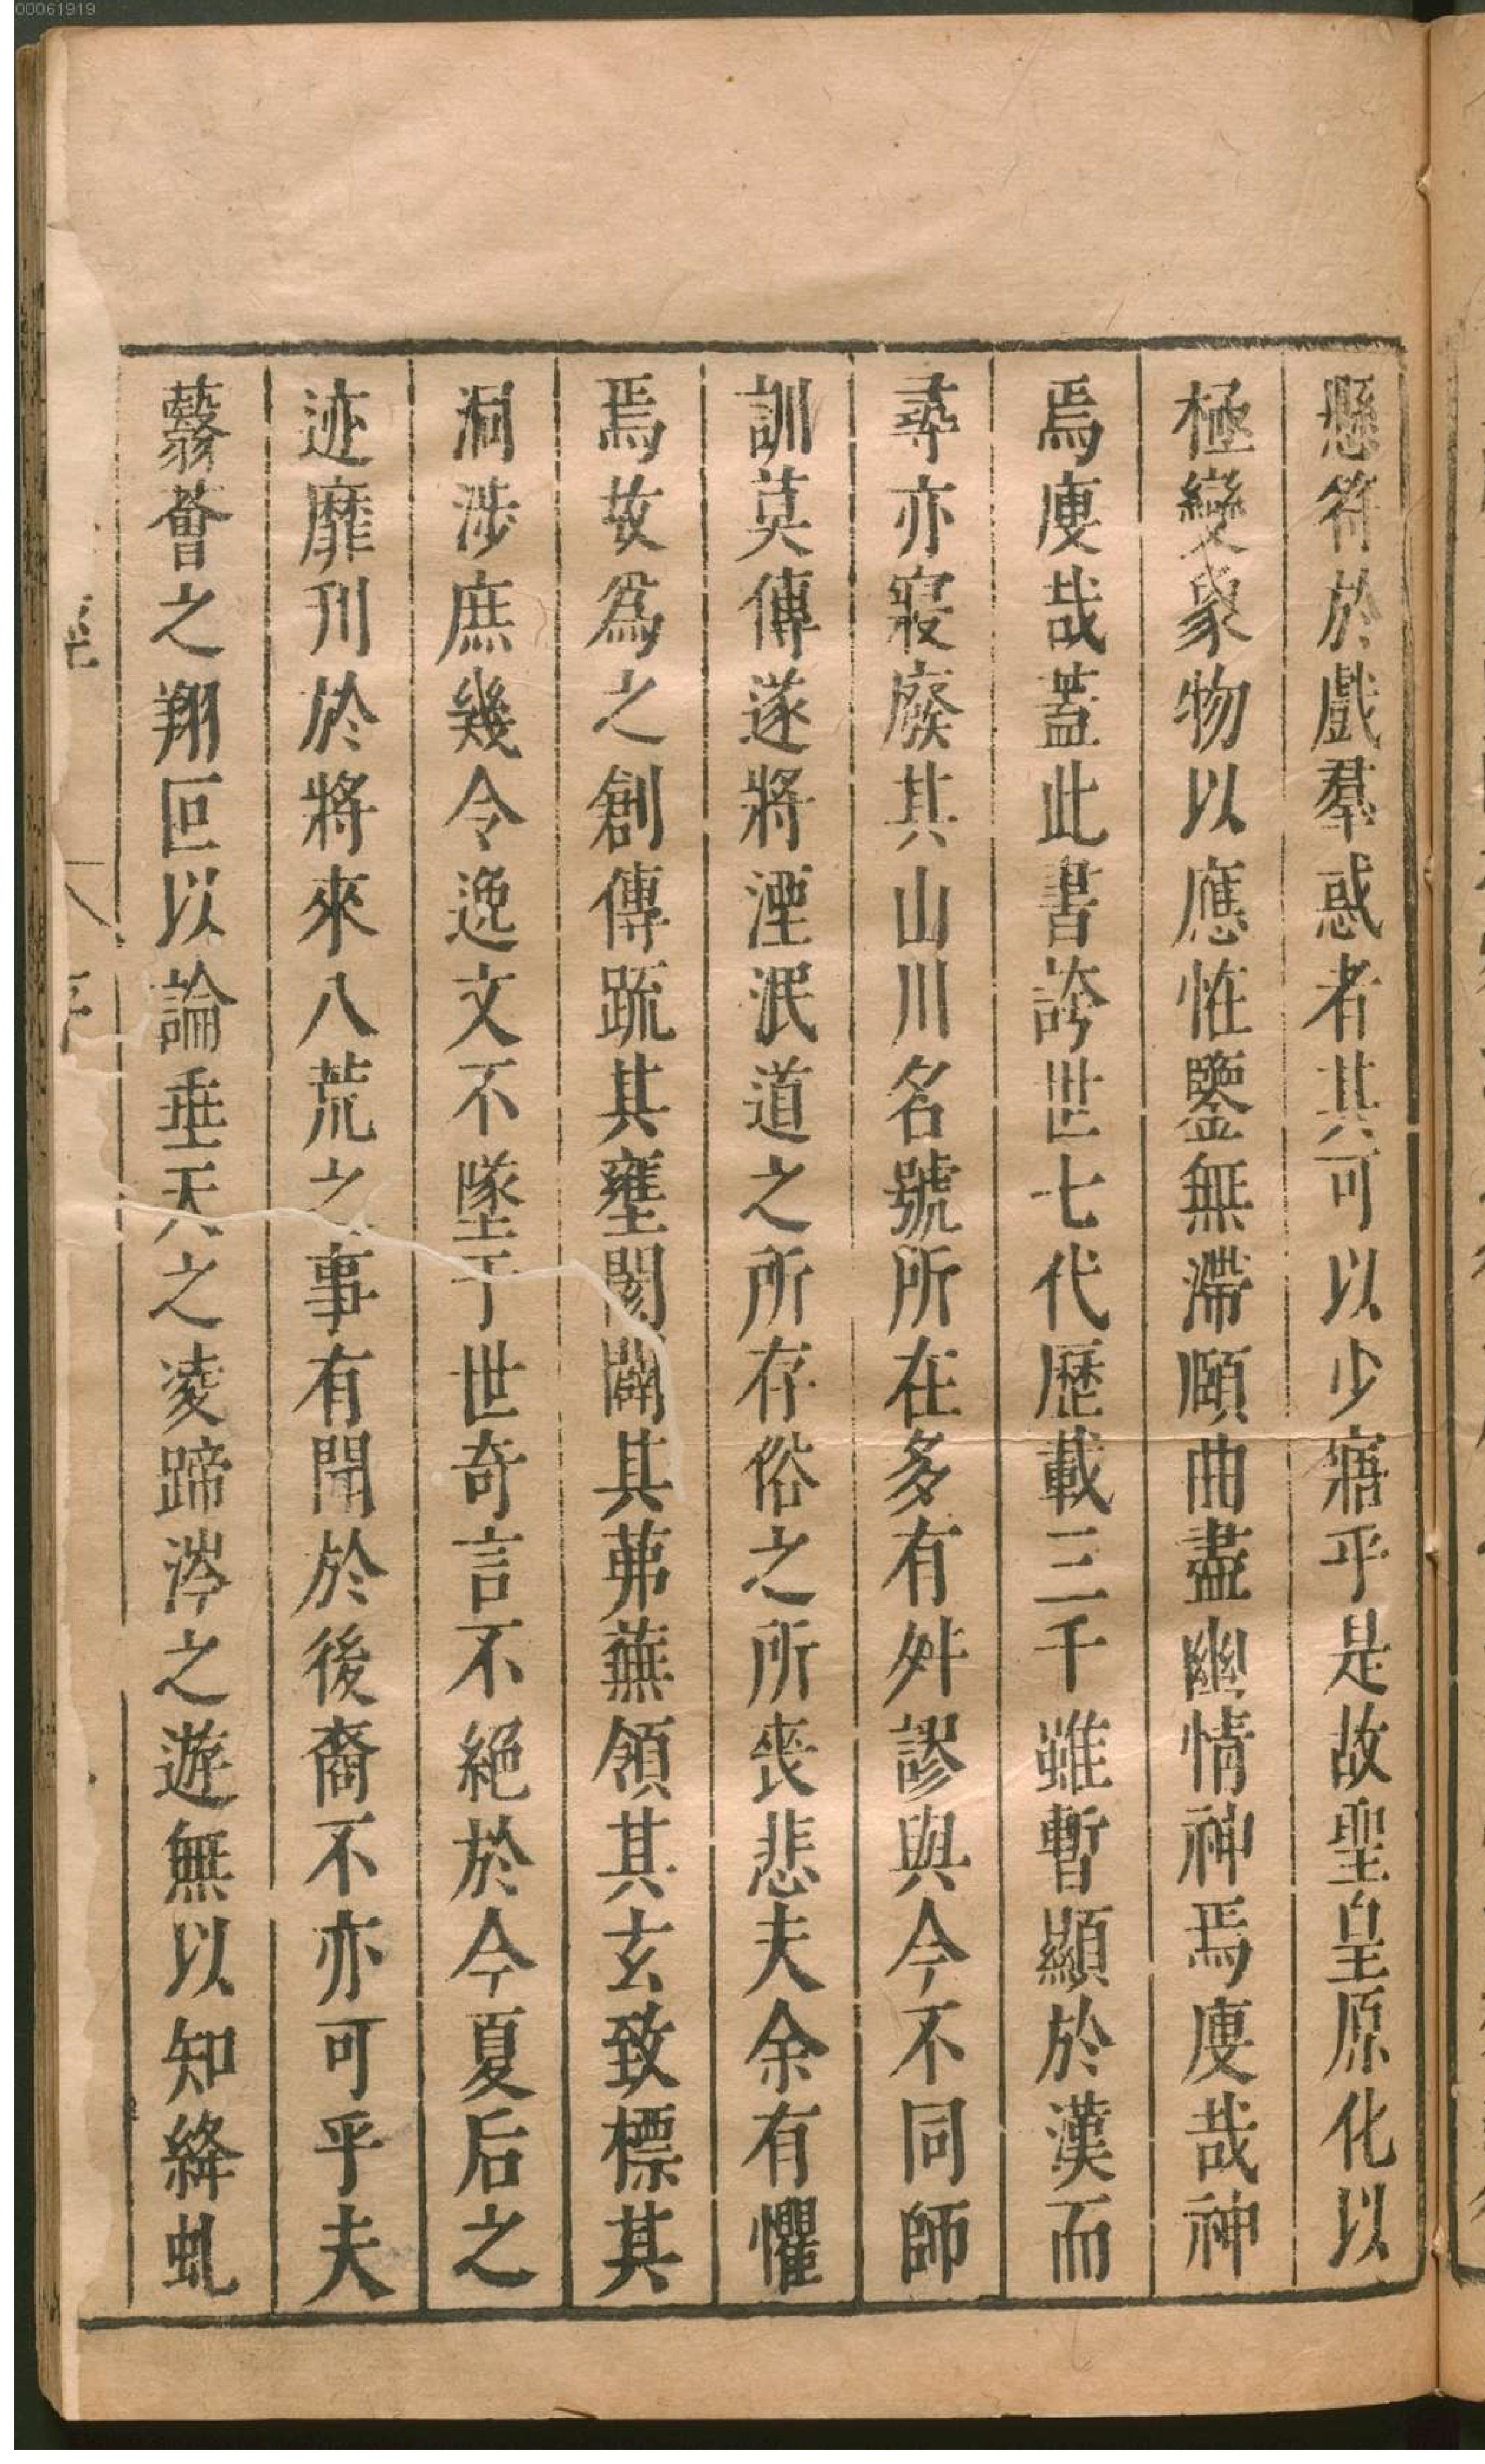 00061919
懸符於戲羣惑者其可以少寤乎是故聖皇原化以
極變象物以應恠鑒無滯賾曲盡幽情神焉廋哉神
焉廋哉蓋此書誇世七代歷載三千雖暫顯於漢而
尋亦寢廢其山川名號所在多有舛謬與今不同師
訓莫傳遂將湮泯道之所存俗之所喪悲夫余有懼
焉故爲之創傳疏其壅閡闢其茀蕪領其玄致標其
洞涉庶幾令逸文不墜于世奇言不絕於今夏后之
迹靡刋於將來八荒之事有聞於後裔不亦可乎夫
蘙薈之翔叵以論垂天之凌蹄涔之遊無以知絳虬